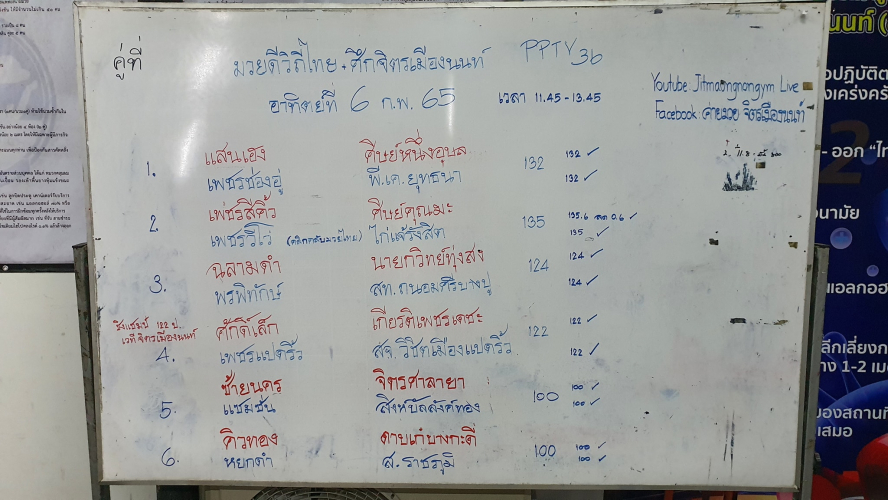 คู่ที่
มวยดีวิถีไทย + ศึกจิตรเมืองนนท์ PPTV 36
อาทิตย์ที่ 6 ก.พ. 65 เวลา 11.45 - 13.45
Youtube Jitmaongnongym Live
Facebook ค่ายมวย จิตรเมืองนนท์
1. แสนเฮง ศิษย์หนึ่งอุบล 132 132 ✓
เพชรช่องอู่ พี.เค.ยุทธนา 132 ✓
2. เพชรสีคิ้ว ศิษย์คุณมะ 135 135.6 ลด 0.6 ✓
เพชรริโว่ (คลิกคลับมวยไทย) ไก่แจ้รังสิต 135 ✓
3. ฉลามดำ นายกวิทย์ทุ่งสง 124 124 ✓
พรพิทักษ์ สท.ถนอมศรีบางปู 124 ✓
ชิงแชมป์ 122 ป.
เวทีจิตรเมืองนนท์
4. ศักดิ์เล็ก เกียรติเพชรเดชะ 122 122 ✓
เพชรแปดริ้ว สจ.วิชิตเมืองแปดริ้ว 122 ✓
5. ซ้ายนคร จิตรศาลายา 100 100 ✓
แชมชั่น สิงห์บัลลังค์ทอง 100 ✓
6. คิวทอง 100 100 ✓
หยกดำ ส.ราชภูมิ 100 ✓
- ออก "ไท
นามัย
แอลกอฮ
ลีกเลี่ยงก
าง 1-2 เม
ของสถานที่
เสมอ